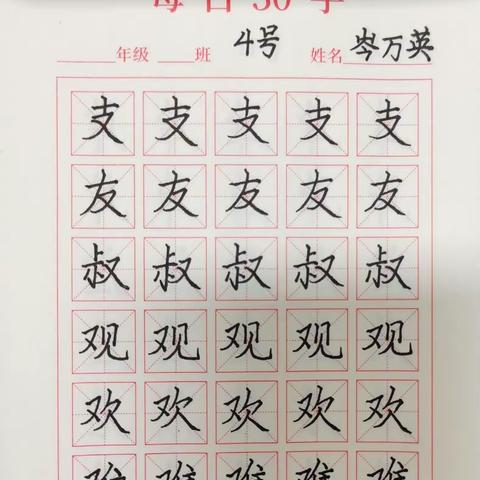 每日30字
年级 班 4号 姓名 岑万英
支 支 支 支 支
友 友 友 友 友
叔 叔 叔 叔 叔
观 观 观 观 观
欢 欢 欢 欢 欢